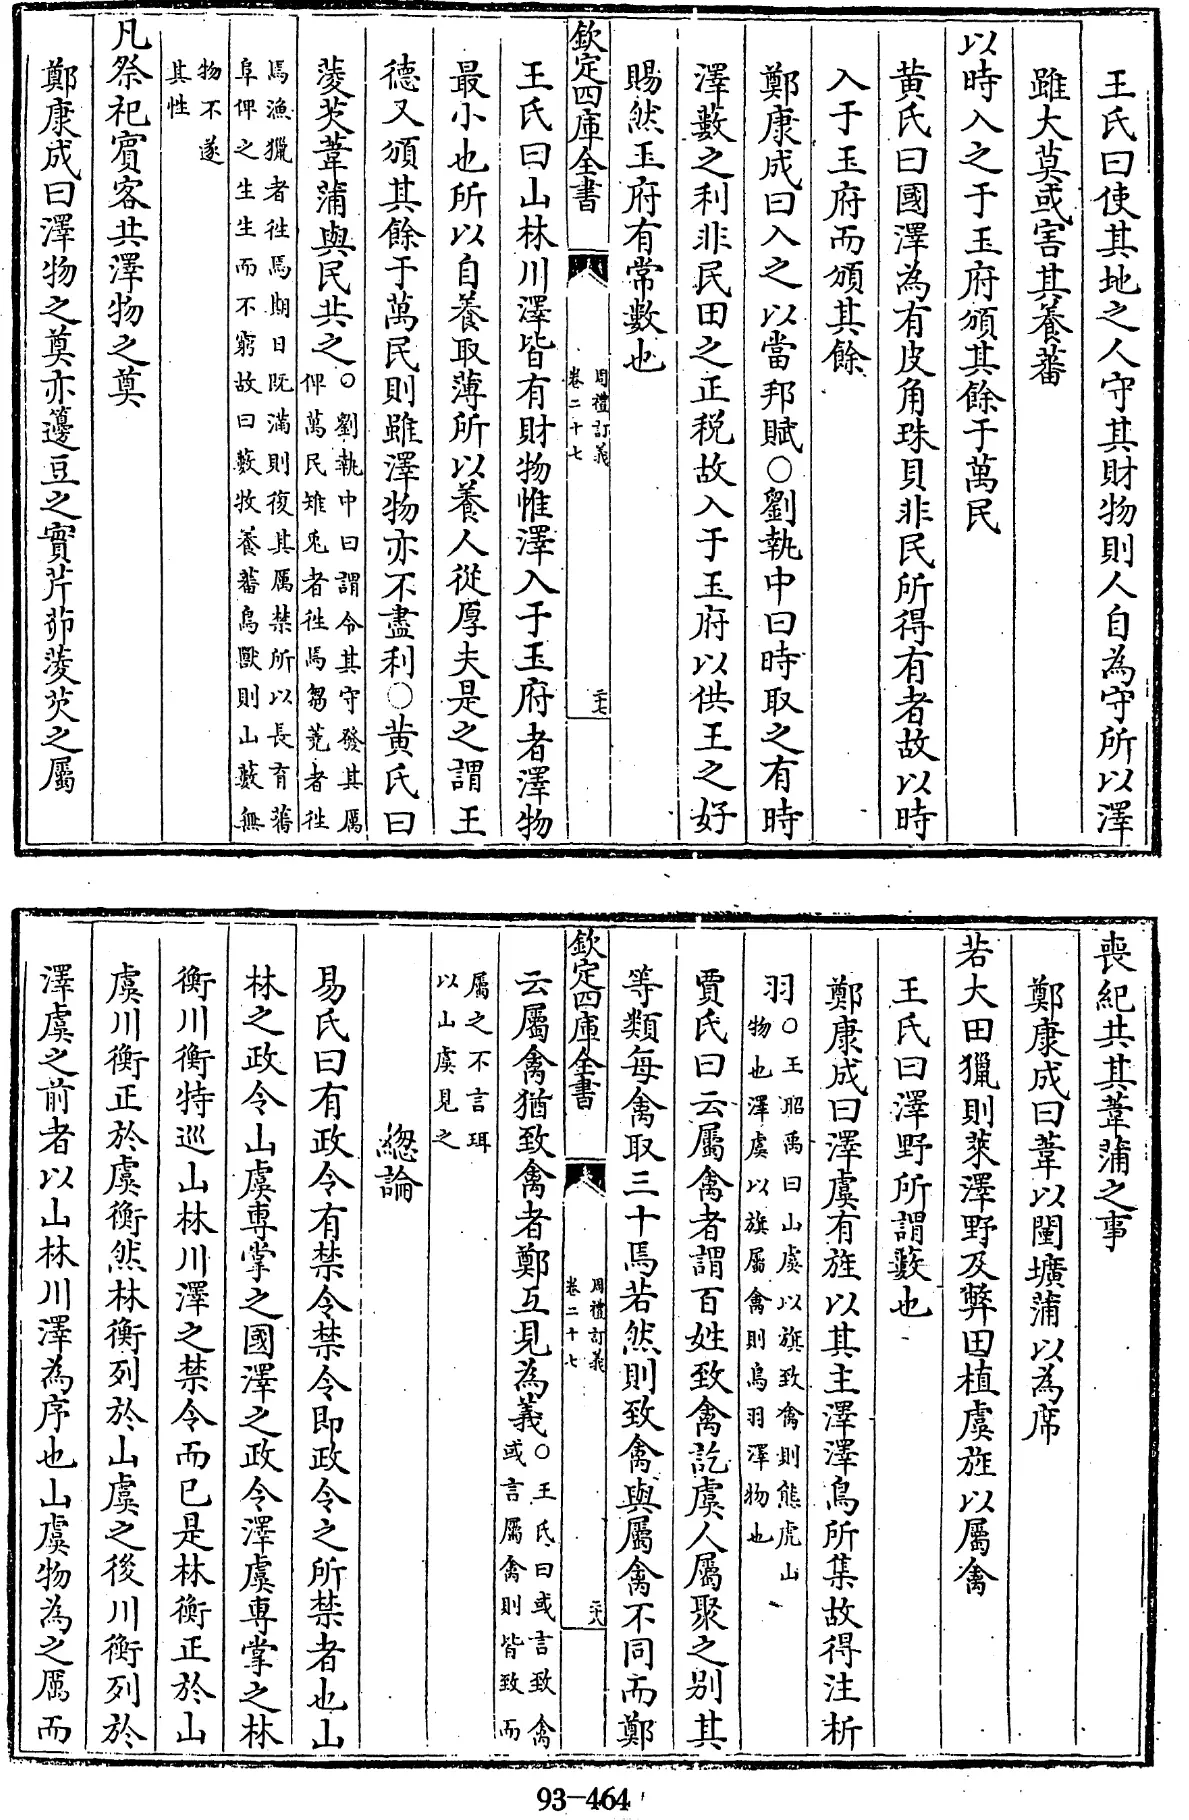 王氏曰使其地之人守其財物則人自為守所以澤
雖大莫或害其養蕃
以時入之于玉府頒其餘于萬民
黃氏曰國澤為有皮角珠貝非民所得有者故以時
入于玉府而頒其餘
鄭康成曰入之以當邦賦○劉執中曰時取之有時
澤藪之利非民田之正稅故入于玉府以供王之好
賜然玉府有常數也
欽定四庫全書
周禮訂義
卷二十七
二七
王氏曰山林川澤皆有財物惟澤入于玉府者澤物
最小也所以自養取薄所以養人從厚夫是之謂王
德又頒其餘于萬民則雖澤物亦不盡利○黃氏曰
菱芡葦蒲與民共之○劉執中曰謂令其守發其厲
俾萬民雉兎者徃焉芻蕘者徃
焉漁獵者徃焉期日既滿則復其厲禁所以長育蕃
阜俾之生生而不窮故曰藪牧養蕃鳥獸則山藪無
物不遂
其性
凡祭祀賓客共澤物之奠
鄭康成曰澤物之奠亦籩豆之實芹茆菱芡之屬
喪紀共其葦蒲之事
鄭康成曰葦以闉壙蒲以為席
若大田獵則萊澤野及弊田植虞旌以屬禽
王氏曰澤野所謂藪也
鄭康成曰澤虞有旌以其主澤澤鳥所集故得注析
羽○王昭禹曰山虞以旗致禽則熊虎山
物也澤虞以旌屬禽則鳥羽澤物也
賈氏曰云屬禽者謂百姓致禽訖虞人屬聚之别其
等類每禽取三十焉若然則致禽與屬禽不同而鄭
欽定四庫全書
周禮訂義
卷二十七
二八
云屬禽猶致禽者鄭互見為義○王氏曰或言致禽
或言屬禽則皆致而
屬之不言珥
以山虞見之
緫論
易氏曰有政令有禁令禁令即政令之所禁者也山
林之政令山虞專掌之國澤之政令澤虞專掌之林
衡川衡特巡山林川澤之禁令而已是林衡正於山
虞川衡正於虞衡然林衡列於山虞之後川衡列於
澤虞之前者以山林川澤為序也山虞物為之厲而
93-464